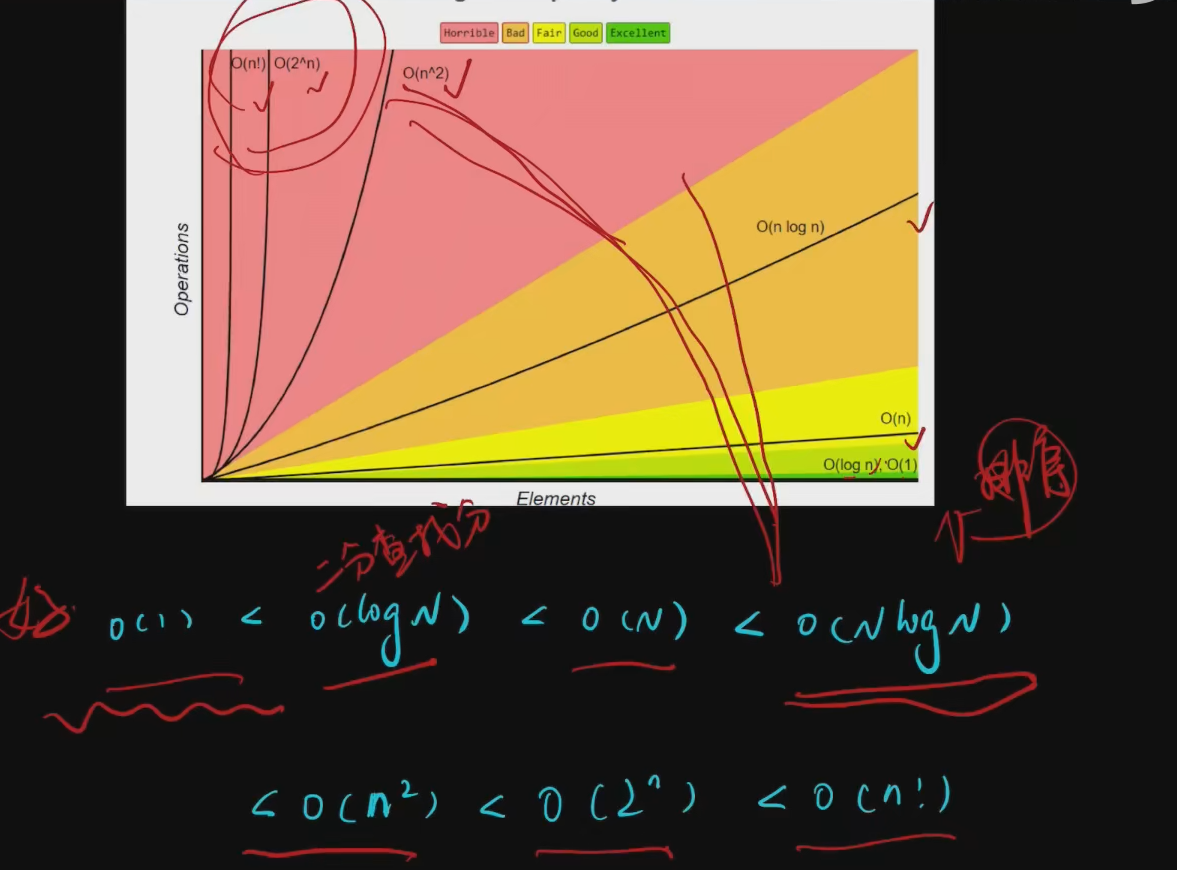 Horrible Bad Fair Good Excellent
O(n!) O(2^n) O(n^2)
O(n log n)
Operations
O(n)
O(log n), O(1)
Elements
排序
二分查找
好 O(1) < O(log N) < O(N) < O(N log N)
< O(n²) < O(2ⁿ) < O(n!)